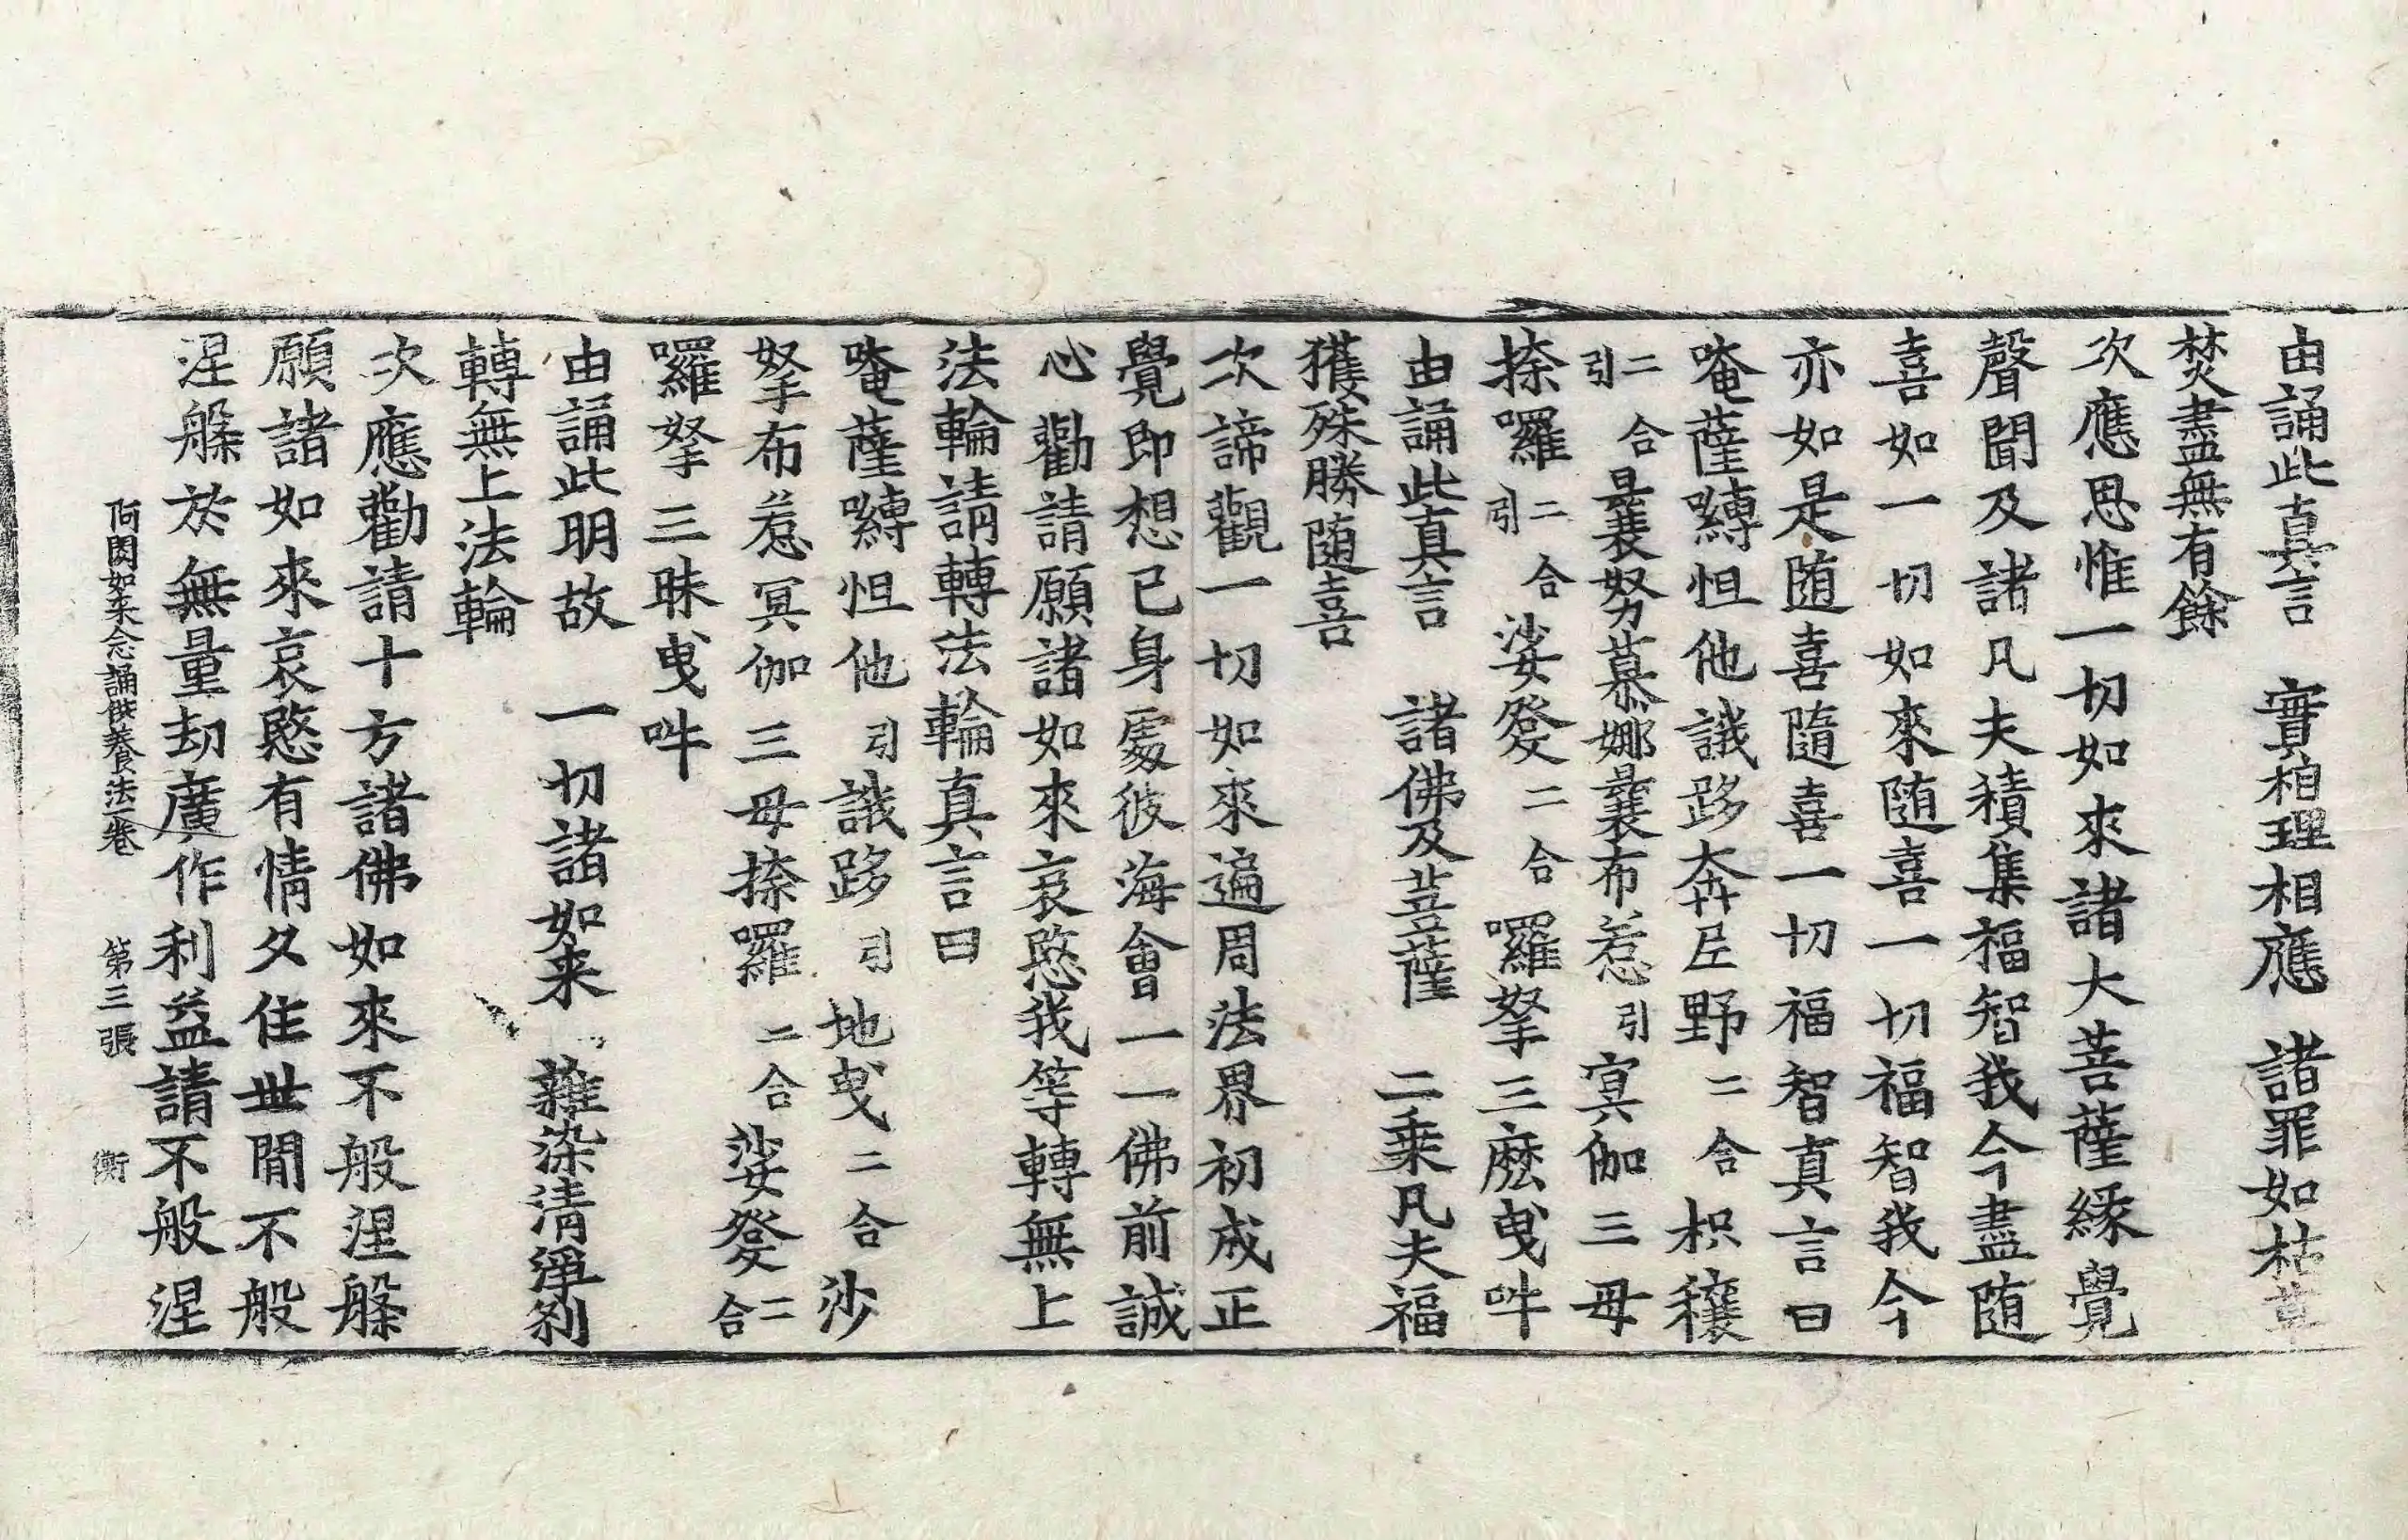 由誦此真言　實相理相應　諸罪如枯草
焚盡無有餘
次應思惟一切如來諸大菩薩緣覺
聲聞及諸凡夫積集福智我今盡随
喜如一切如來随喜一切福智我今
亦如是随喜隨喜一切福智真言曰
唵薩嚩怛他誐跢奔𡰱野二合枳穰
二合引曩努慕娜曩布惹引冥伽三母
捺囉二合引娑發二合囉拏三麽曳吽
由誦此真言　諸佛及菩薩　二乗凡夫福
獲殊勝随喜
次諦觀一切如來遍周法界初成正
覺即想已身處彼海會一一佛前誠
心勸請願諸如來哀愍我等轉無上
法輪請轉法輪真言曰
唵薩嚩怛他引誐跢引地曳二合沙
拏布惹冥伽三母捺囉二合娑發二合
囉拏三昧曳吽
由誦此明故　一切諸如来　雜染清淨刹
轉無上法輪
次應勸請十方諸佛如來不般涅槃
願諸如來哀愍有情久住世閒不般
涅槃於無量劫廣作利益請不般涅
阿閦如来念誦供養法一卷　第三張　衡